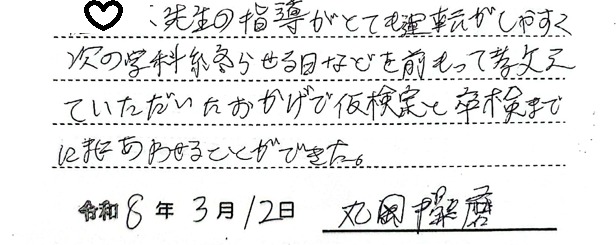 ：先生の指導がとても運転がしやすく
次の学科終らせる日などを前もって教え
ていただいたおかげで仮検定と卒検まで
にまにあわせることができた。
令和8年3月12日 丸岡 磨